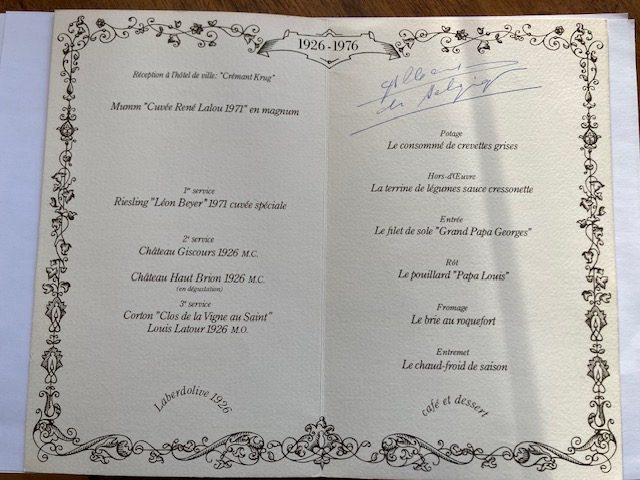 1926 - 1976
Réception à l'hôtel de ville: "Crémant Krug"
Mumm "Cuvée René Lalou 1971" en magnum
1er service
Riesling "Léon Beyer" 1971 cuvée spéciale
2e service
Château Giscours 1926 M.C.
Château Haut Brion 1926 M.C.
(en dégustation)
3e service
Corton "Clos de la Vigne au Saint"
Louis Latour 1926 M.O.
Laberdolive 1926
Potage
Le consommé de crevettes grises
Hors-d'Œuvre
La terrine de légumes sauce cressonette
Entrée
Le filet de sole "Grand Papa Georges"
Rôt
Le pouillard "Papa Louis"
Fromage
Le brie au roquefort
Entremet
Le chaud-froid de saison
café et dessert